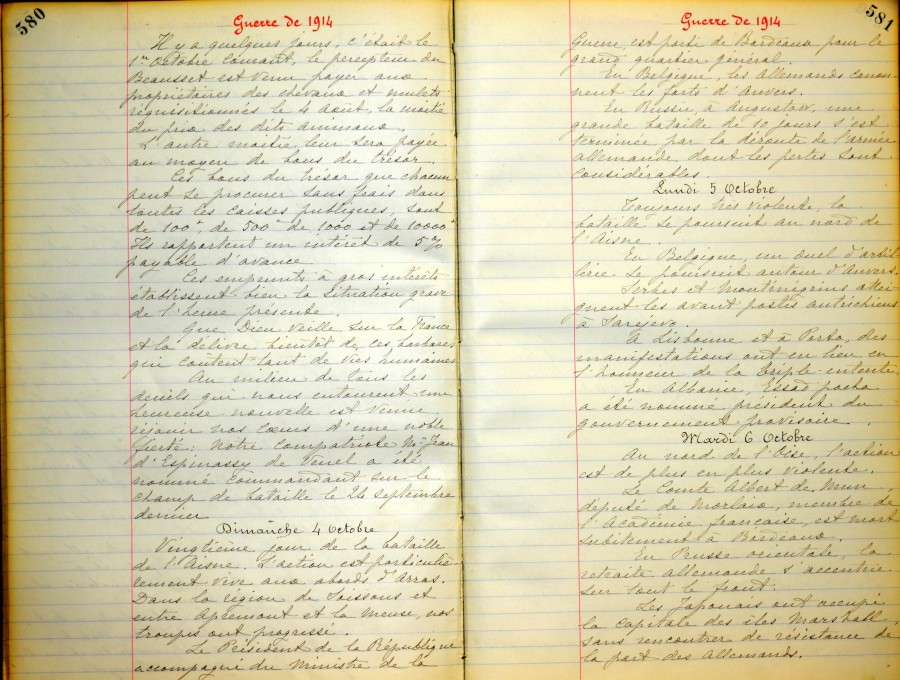 580
Guerre de 1914
Il y a quelques jours, c'était le
1er Octobre courant, le percepteur du
Beausset est venu payer aux
propriétaires des chevaux et mulets
réquisitionnés le 4 Août, la moitié
du prix des dits animaux.
L'autre moitié leur sera payée
au moyen de bons du trésor.
Ces bons du trésor que chacun
peut se procurer sans frais dans
toutes les caisses publiques, sont
de 100f, de 500f de 1000 et de 10000f
Ils rapportent un intérêt de 5%
payable d'avance
Ces emprunts à gros intérêts
établissent bien la situation grave
de l'heure présente.
Que Dieu veille sur la France
et la délivre bientôt de ces barbares
qui coûtent tant de vies humaines
Au milieu de tous les
deuils qui nous entourent une
heureuse nouvelle est venue
réjouir nos cœurs d'une noble
fierté: Notre compatriote Mr Jean
d'Espinassy de Venel a été
nommé Commandant sur le
champ de bataille le 24 Septembre
dernier
Dimanche 4 Octobre
Vingtième jour de la bataille
de l'Aisne. L'action est particuliè-
rement vive aux abords d'Arras.
Dans la région de Soissons et
entre Apremont et la Meuse, nos
troupes ont progressé.
Le Président de la République
accompagné du Ministre de la
581
Guerre de 1914
Guerre, est parti de Bordeaux pour le
grand quartier général.
En Belgique, les Allemands canon-
nent les forts d'Anvers.
En Russie, à Augustow, une
grande bataille de 10 jours s'est
terminée par la déroute de l'armée
allemande dont les pertes sont
considérables.
Lundi 5 Octobre
Toujours très violente, la
bataille se poursuit au nord de
l'Aisne.
En Belgique, un duel d'artil-
lerie se poursuit autour d'Anvers.
Serbes et Monténégrins attei-
gnent les avant postes autrichiens
à Sarajevo.
A Lisbonne et à Porto, des
manifestations ont eu lieu en
l'honneur de la triple entente.
En Albanie, Essad pacha
a été nommé président du
gouvernement provisoire.
Mardi 6 Octobre
Au nord de l'Oise, l'action
est de plus en plus violente.
Le Comte Albert de Mun,
député de Morlaix, membre de
l'Académie française, est mort
subitement à Bordeaux.
En Prusse orientale, la
retraite allemande s'accentue
sur tout le front.
Les Japonais ont occupé
la Capitale des îles Marshall,
sans rencontrer de résistance de
la part des Allemands.